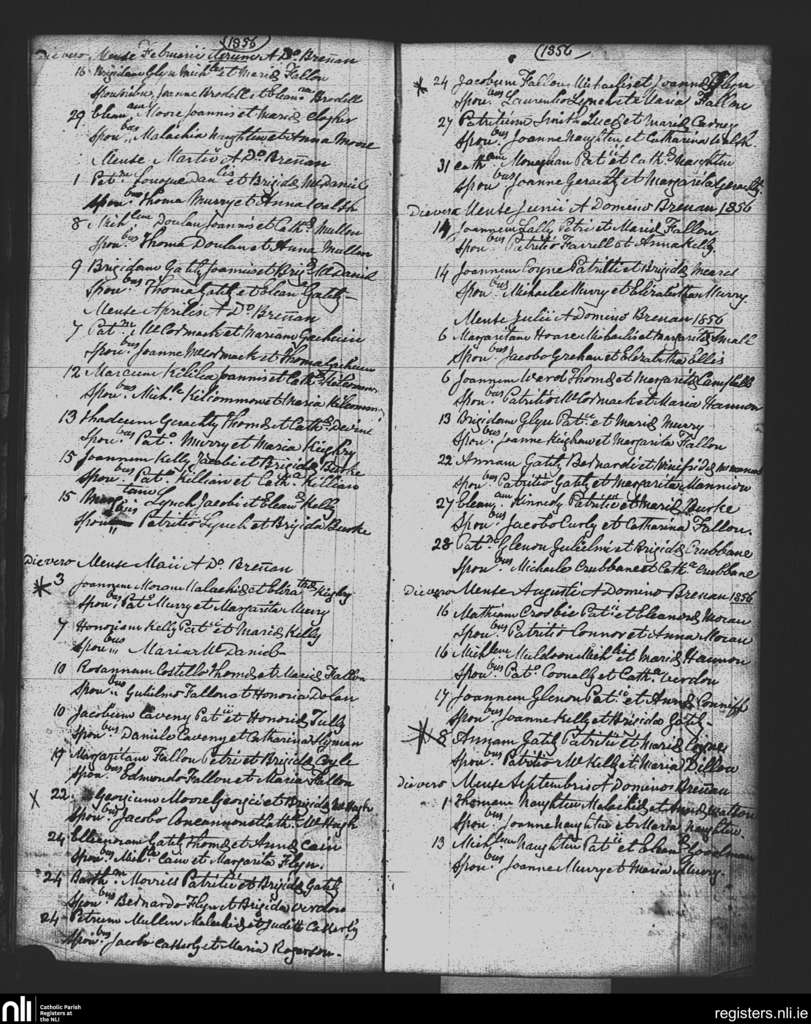 1856
Die vero Mense Februarii iterum A Do. Brenan
16 Brigidam Glyn Michlis et Mariæ Fallon
Sponsoribus Joanne Brodell et Elean Brodell
29 Elean am Moore Joannis et Mariæ
Spon bus Malachia Naughten et Anna Moore
Mense Martii A Do. Brenan
1 Pat et Brigidæ McDaniel
Spon bus Thoma Murry et Anna Walsh
8 Mich lem Doulan Joannis et Cath æ Mullen
Spon bus Thoma Doulan et Anna Mullen
9 Brigidam Gately Joannis et Brigæ McDaniel
Spon bus Thoma Gately et Elean a Gately
Mense Aprilis A Do. Brenan
7 Pat McCormack et Mariam
Spon bus Joanne McCormack et Thoma
12 Marcum Kilkia Joannis et Cath æ Kilcommon
Spon bus Mich le Kilcommon et Maria Kilcommon
13 Thadeum Geraghty Thomæ et Cath æ Devine
Spon bus Pat o Murry et Maria Kighry
15 Joannem Kelly Jacobi et Brigidæ Burke
Spon bus Pat o Killian et Cath a Killian
15 Lynch Jacobi et Elean æ Kelly
Spon bus Patritio Lynch et Brigida Burke
Die vero Mense Maii A Do. Brenan
* 3 Joannem Moran Malachiæ et Eliza Kighry
Spon bus Pat o Murry et Margarita Murry
7 Honoriam Kelly Pat ii et Mariæ Kelly
Spon bus Maria McDaniel
10 Rosannam Costello Thomæ et Mariæ Fallon
Spon bus Gulielmo Fallon et Honoria Dolan
10 Jacobum Caveny Pat ii et Honoriæ Tully
Spon bus Daniele Caveny et Catharina Hyman
19 Margaritam Fallon Petri et Brigidæ Coyle
Spon bus Edmondo Fallon et Maria Fallon
X 22 Georgium Moore Georgii et Brigidæ McHugh
Spon bus Jacobo Concannon et Cath a McHugh
24 Elleanoram Gately Thomæ et Annæ Cain
Spon bus Mich le Cain et Margarita Flyn
24 Barth m Morris Patritii et Brigidæ Gately
Spon bus Bernardo Flyn et Brigida Verdon
24 Petrum Mullen Malachiæ et Judith Casserly
Spon bus Jacobo Casserly et Maria Rogerson
1856
* 24 Jacobum Fallon Michaelis et Joannæ Glyn
Spon bus Laurentio Lynch et Maria Fallon
27 Patritium Smith Lucæ et Mariæ Carney
Spon bus Joanne Naughten et Catharina Walsh
31 Cath am Monaghan Pat ii et Cath æ Naughten
Spon bus Joanne Geraghty et Margarita Geraghty
Die vero Mense Junii A Domino Brenan 1856
14 Joannem Lally Petri et Mariæ Fallon
Spon bus Patritio Farrell et Anna Kelly
14 Joannem Coyne Patritii et Brigidæ Meares
Spon bus Michaele Murry et Elizabetha Murry
Mense Julii A Domino Brenan 1856
6 Margaritam Hoare Michaelis et Margaritæ Small
Spon bus Jacobo Grehan et Elizabetha Ellis
6 Joannem Ward Thomæ et Margaritæ Campbell
Spon bus Patritio McCormack et Maria Hannon
13 Brigidam Glyn Pat ii et Mariæ Murry
Spon bus Joanne Keighan et Margarita Fallon
22 Annam Gately Bernardi et Winifridæ
Spon bus Patritio Gately et Margarita Mannion
27 Elean am Kinnedy Patritii et Mariæ Burke
Spon bus Jacobo Curly et Catharina Fallon
28 Pat m Glenon Gulielmi et Brigidæ Crubbane
Spon bus Michaele Crubbane et Cath a Crubbane
Die vero Mense Augusti A Domino Brenan 1856
16 Mathiam Crosbie Pat ii et Eleanoræ Moran
Spon bus Patritio Connor et Anna Moran
16 Mich lem Muldoon Mich lis et Mariæ Hannon
Spon bus Pat o Connally et Cath a Verdon
17 Joannem Glenon Pat ii et Annæ Conniff
Spon bus Joanne Kelly et Brigida Gately
* 8 Annam Gately Patritii et Mariæ Coyne
Spon bus Patritio McKelly et Maria Dillon
Die vero Mense Septembris A Domino Brenan
1 Thomam Naughten Malachiæ et Annæ Watson
Spon bus Joanne Naughten et Maria Naughten
13 Mich lem Naughten Pat ii et Elean æ Goodman
Spon bus Joanne Murry et Maria Murry
nli Catholic Parish Registers at the NLI
registers.nli.ie